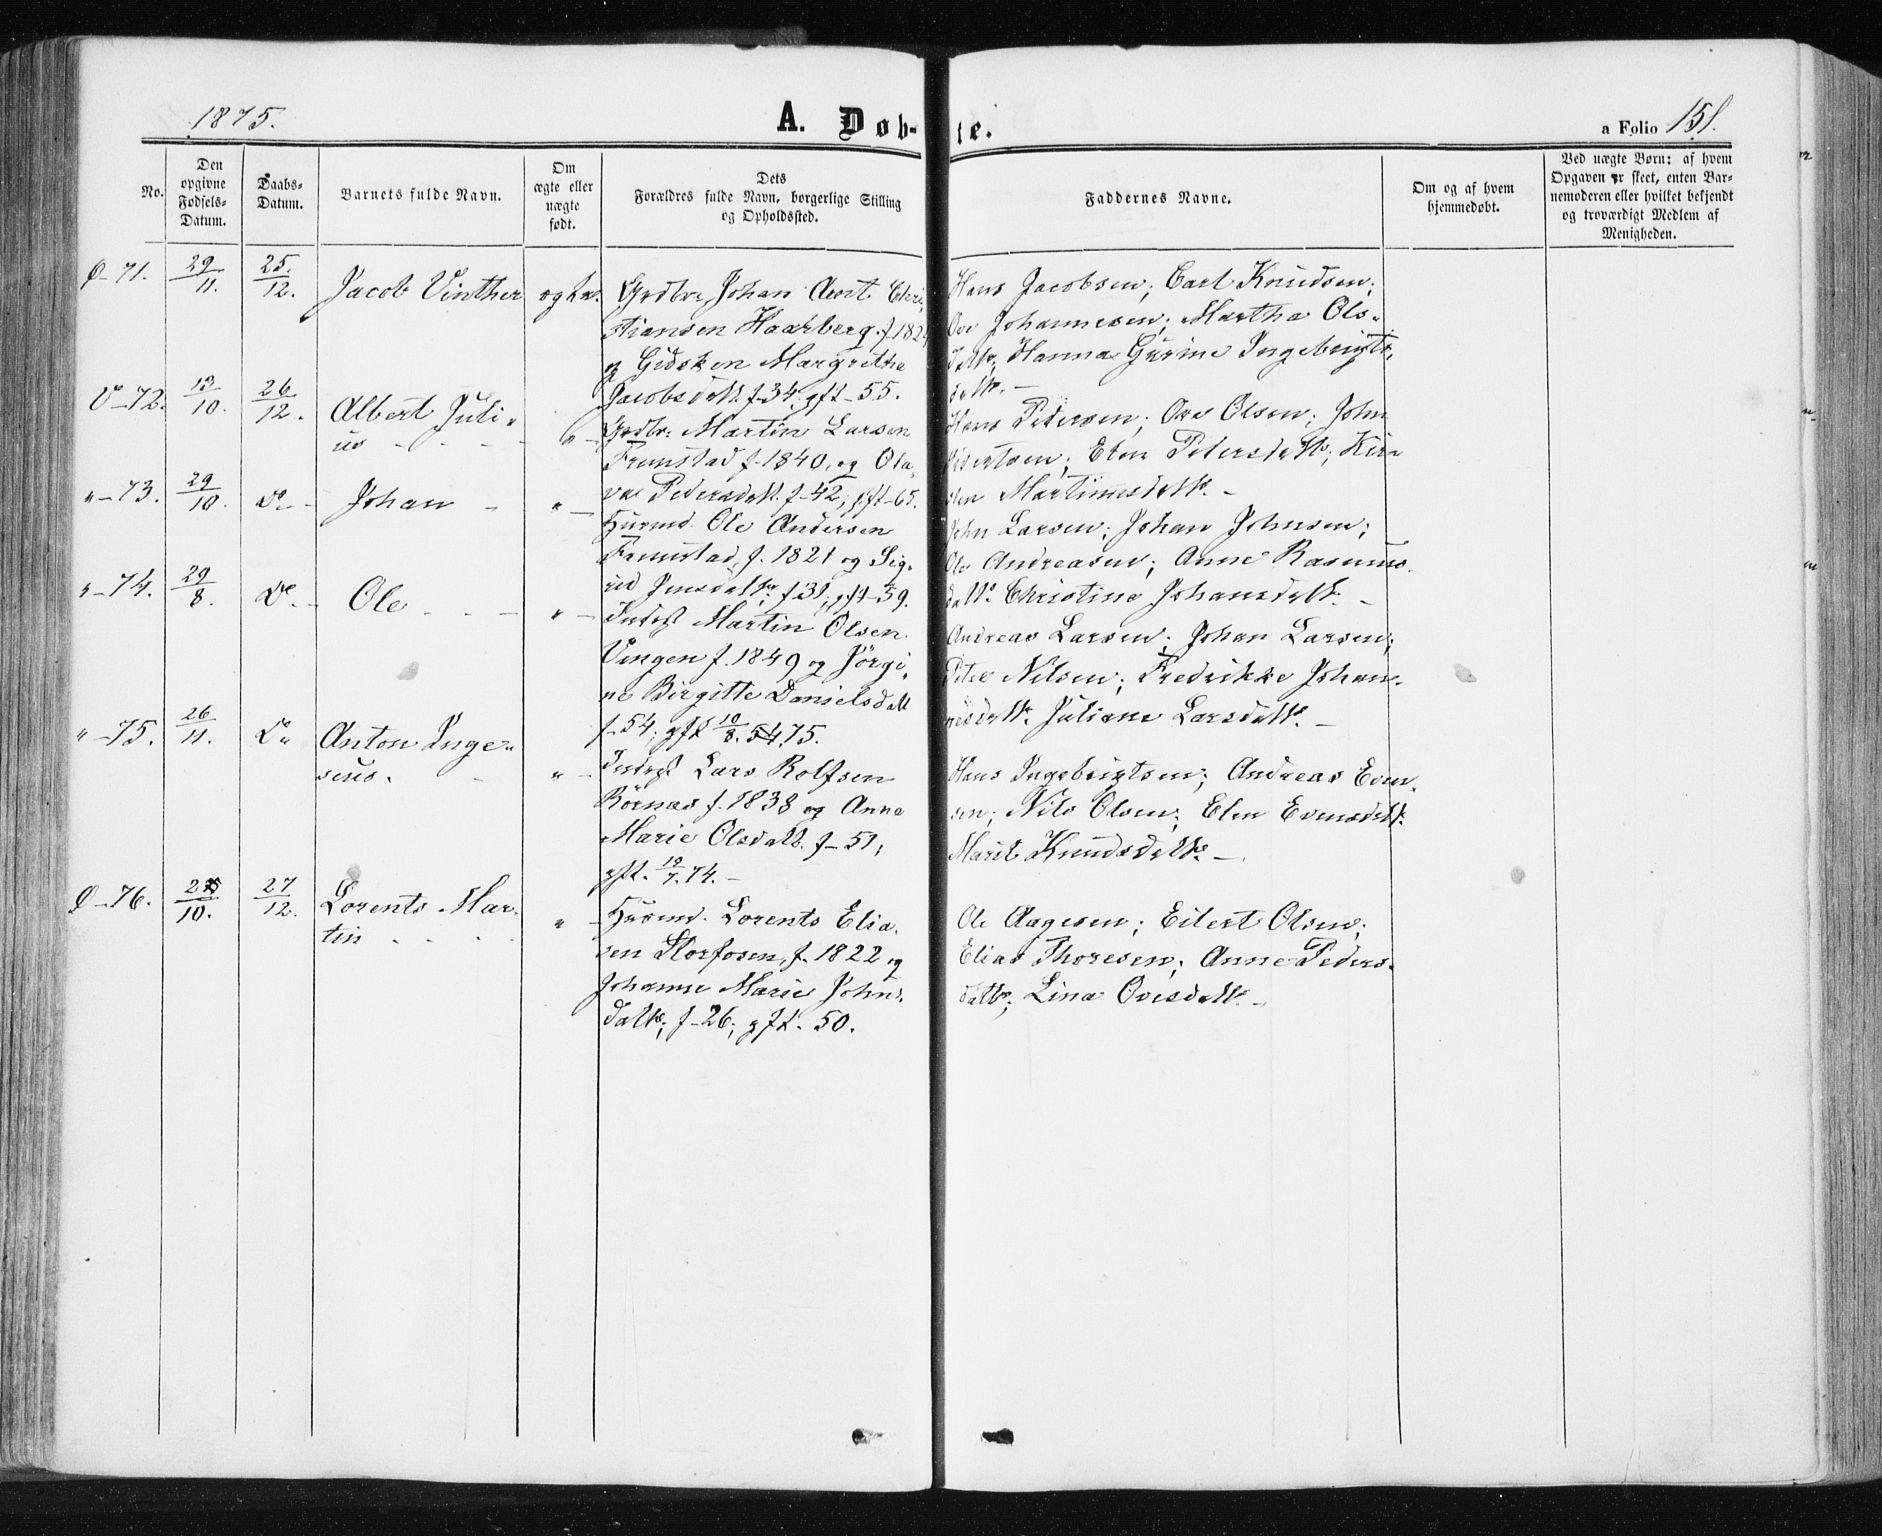 1875.
A. Døb-
te.
a Folio 151.
No.
Den opgivne Fødsels-Datum.
Daabs-Datum.
Barnets fulde Navn.
Om ægte eller uægte født.
Dets Forældres fulde Navn, borgerlige Stilling og Opholdssted.
Faddernes Navne.
Om og af hvem hjemmedøbt.
Ved uægte Børn: af hvem Opgaven er skeet, enten Barnemoderen eller hvilket bekjendt og troværdigt Medlem af Menigheden.
Ø-71. 29/11. 25./12. Jacob Vinther ægte. Grdbr. Johan Arnt Chri-
stiansen Haarberg f. 1824
og Gidsken Margrethe
Jacobsdatt. f-34, gft-55.
Hans Jacobsen; Carl Knudsen;
Ove Johannesen; Martha Ols-
datt. Hanna Gurine Ingebrigts-
datt. -
V-72. 13/10. 26/12. Albert Juli-
us - - - " - Grdbr. Martin Larsen
Fremstad f. 1840, og Ola-
va Pedersdatt. f-42, gft-65.
Hans Pedersen; Ove Olsen; John
Elen Petersdatt.; Kir-
sten Martinusdatt. -
"-73. 29/10. Do - Johan - " -
Husmd. Ole Andersen
Fremstad, f. 1821 og Sig-
rid Jensdatter, f-31, gft-59.
John Larsen; Johan Johnsen;
Ole Andreasen; Anne Rasmus-
datt. Christine Johansdatt. -
"-74. 29/8. Do - Ole - - - " - Inderst Martin Olsen
Vingen f. 1849 og Jørgi-
ne Birgitte Danielsdatt
f-54; gft 10/8. 54, 75.
Andreas Larsen; Johan Larsen;
Peter Nilsen; Fredrikke Johan-
nesdatt. Juliane Larsdatt. -
"-75. 26/11. Do Anton Inge-
seus. - " - Inderst Lars Rolfsen
Börnas f. 1838 og Anne
Marie Olsdatt. f-51;
gft. 19/7. 74. -
Hans Ingebrigtsen; Andreas Even-
sen; Nils Olsen; Elen Evensdatt.
Marit Knudsdatt. -
Ø-76. 25/10. 27/12. Lorents Mar-
tin - - - " - Husmd. Lorents Elia-
sen Storfosen, f. 1822 og
Johanne Marie Johns-
datt.; f-26; gft. 50.
Ole Aagesen; Eilert Olsen;
Elias Thoresen; Anne Peders-
datt; Lina Ovesdatt. -